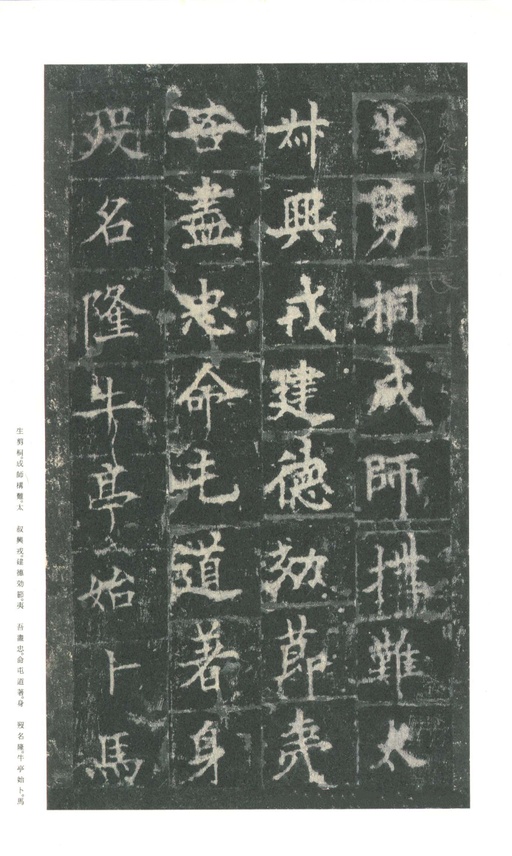 生剪桐成師搆難太
叔興戎建德効節夷
吾盡忠命屯道著身
歿名隆牛亭始卜馬
生剪桐。成師構難。太　叔興戎。建德効節。夷　吾盡忠。命屯道著。身　歿名隆。牛亭始卜。馬